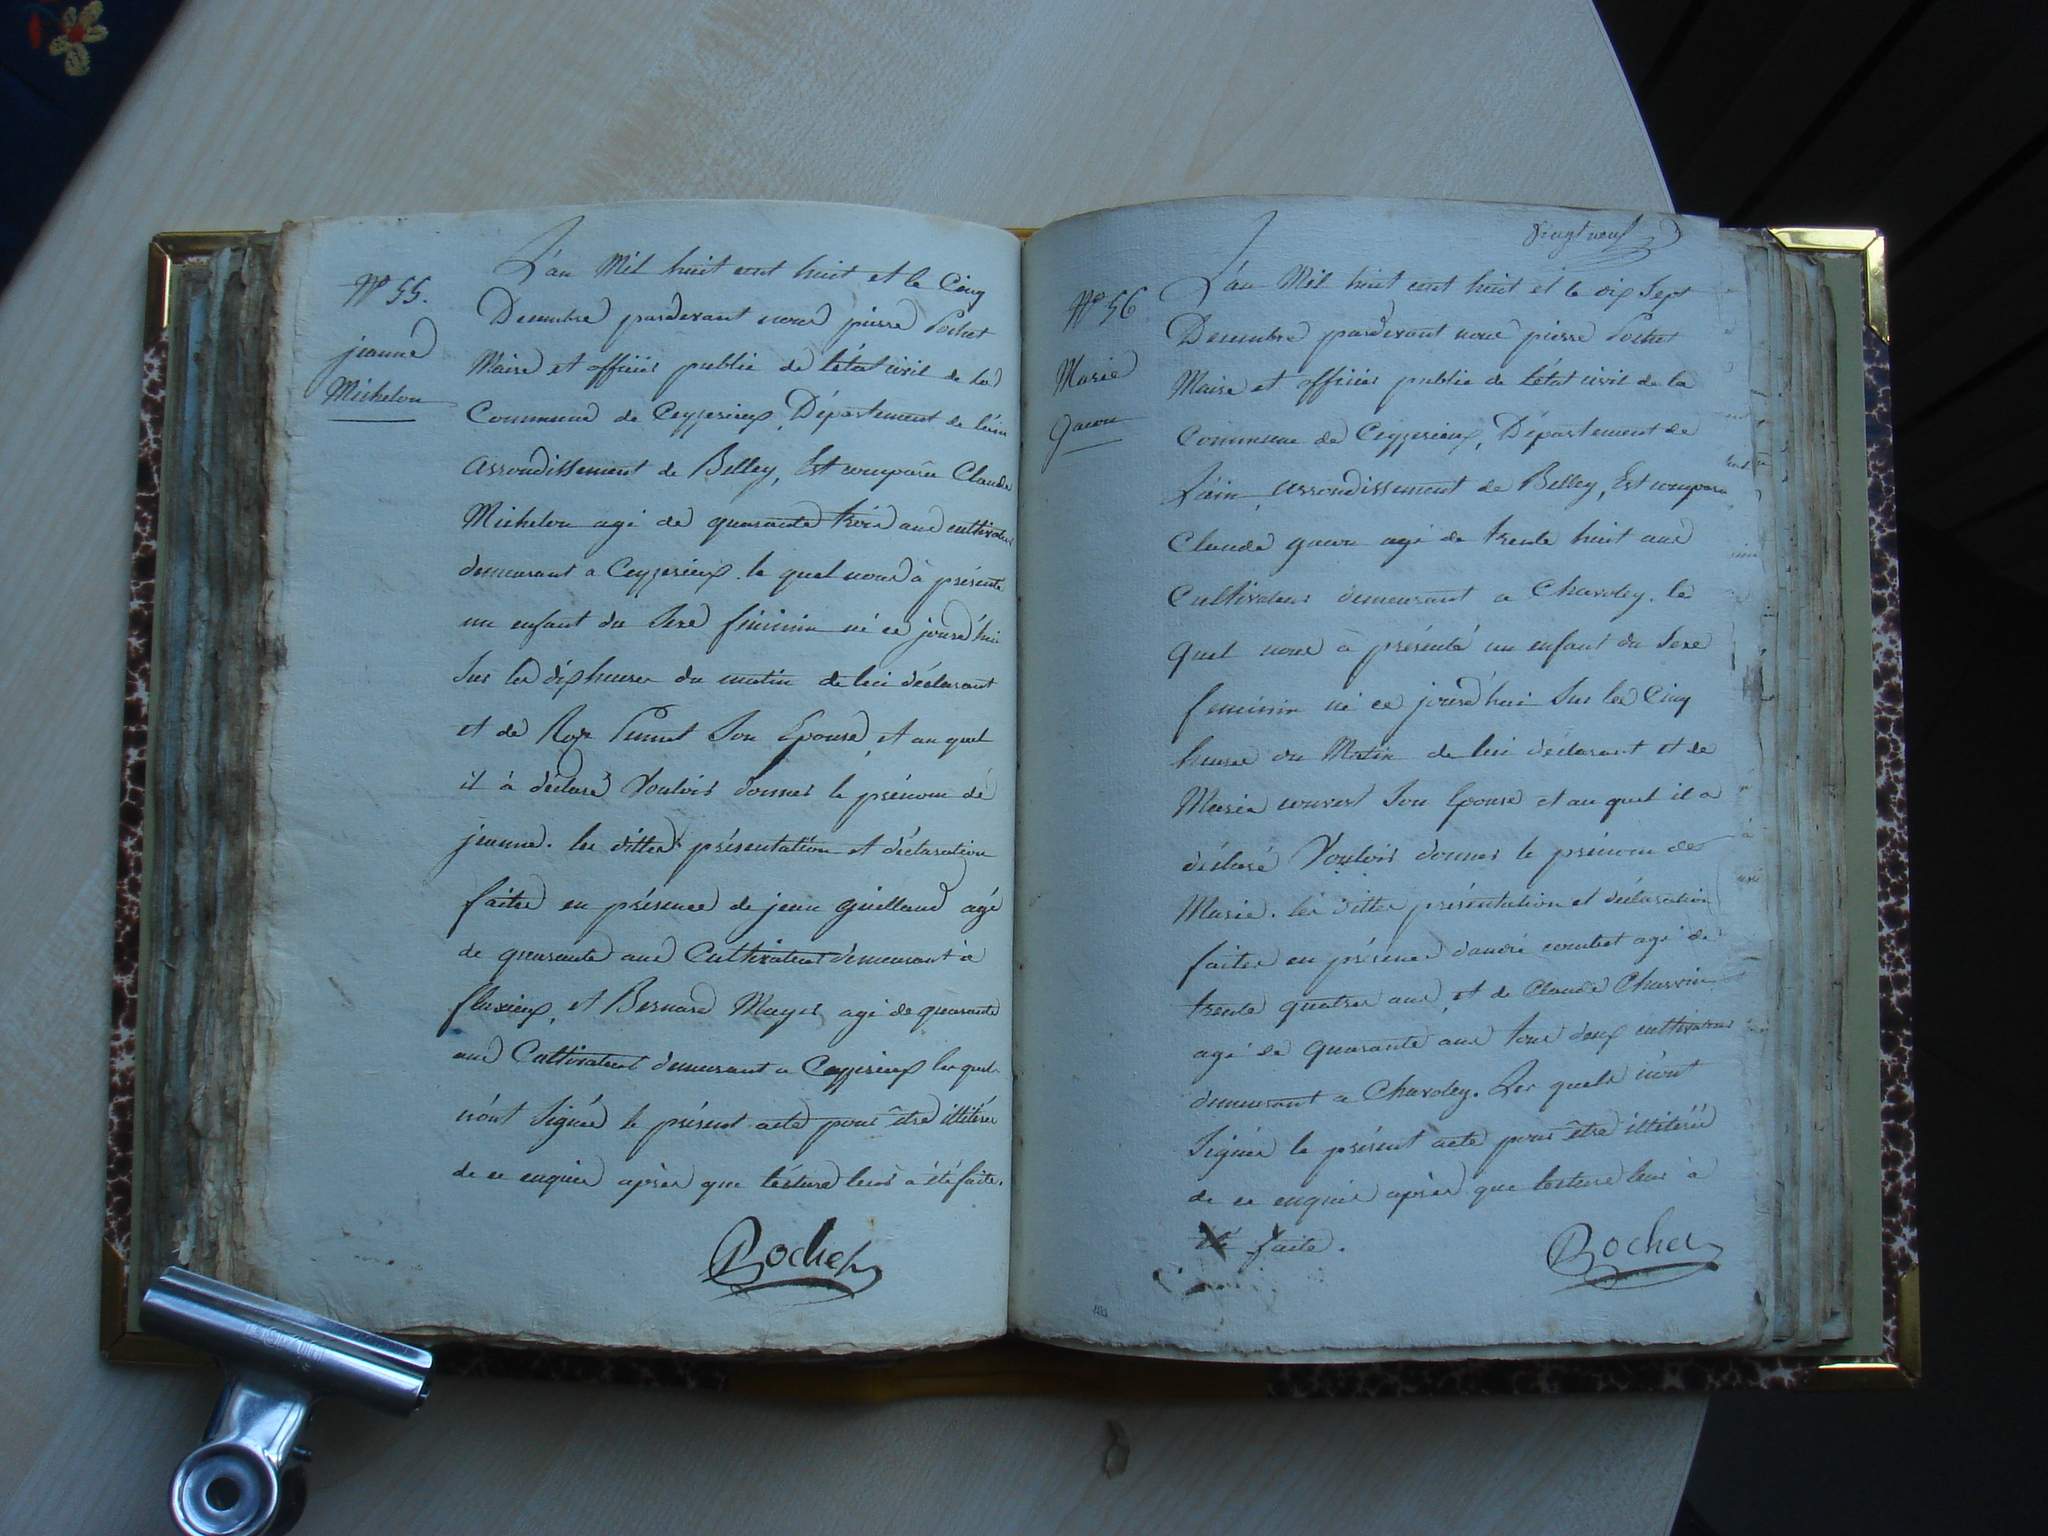 N° 55.
jeanne
Michelon
L'an Mil huit cent huit et le Cinq
Decembre pardevant nous pierre Pochet
Maire et officier public de l'état civil de la
Commune de Ceyzerieux, Département de l'ain
arrondissement de Belley, Est comparu Claude
Michelon agé de quarante trois ans cultivateur
demeurant a Ceyzerieux. le quel nous à présenté
un enfant du Sexe féminin né ce jourd'hui
Sur les dix heures du matin de lui déclarant
et de Son Epouse, et au quel
il à déclaré Vouloir donner le prénom de
jeanne. les dittes présentation et déclaration
faites en présence de jean guilland agé
de quarante ans Cultivateur demeurant à
flaxieux, et Bernard Mayer agé de quarante
ans Cultivateur demeurant a Ceyzerieux les quels
n'ont Signés le présent acte pour être illitérés
de ce enquis après que lecture leur à été faite.
Pochet
Vingt neuf
N° 56
Marie
gacon
L'an Mil huit cent huit et le dix Sept
Decembre pardevant nous pierre Pochet
Maire et officier public de l'état civil de la
Commune de Ceyzerieux, Département de
L'ain, arrondissement de Belley, Est comparu
Claude gacon agé de trente huit ans
Cultivateur demeurant a Chavoley. le
quel nous à présenté un enfant du Sexe
feminin né ce jourd'hui Sur les Cinq
heures du Matin de lui déclarant et de
Marie Son Epouse et au quel il a
déclaré Vouloir donner le prénom de
Marie. les dittes présentation et déclaration
faites en présence d'andré combet agé de
trente quatres ans, et de Claude Charvin
agé de quarante ans tous deux cultivateurs
demeurant a Chavoley. Les quels n'ont
Signés le présent acte pour être illitérés
de ce enquis après que lecture leur à
été faite.
Pochet